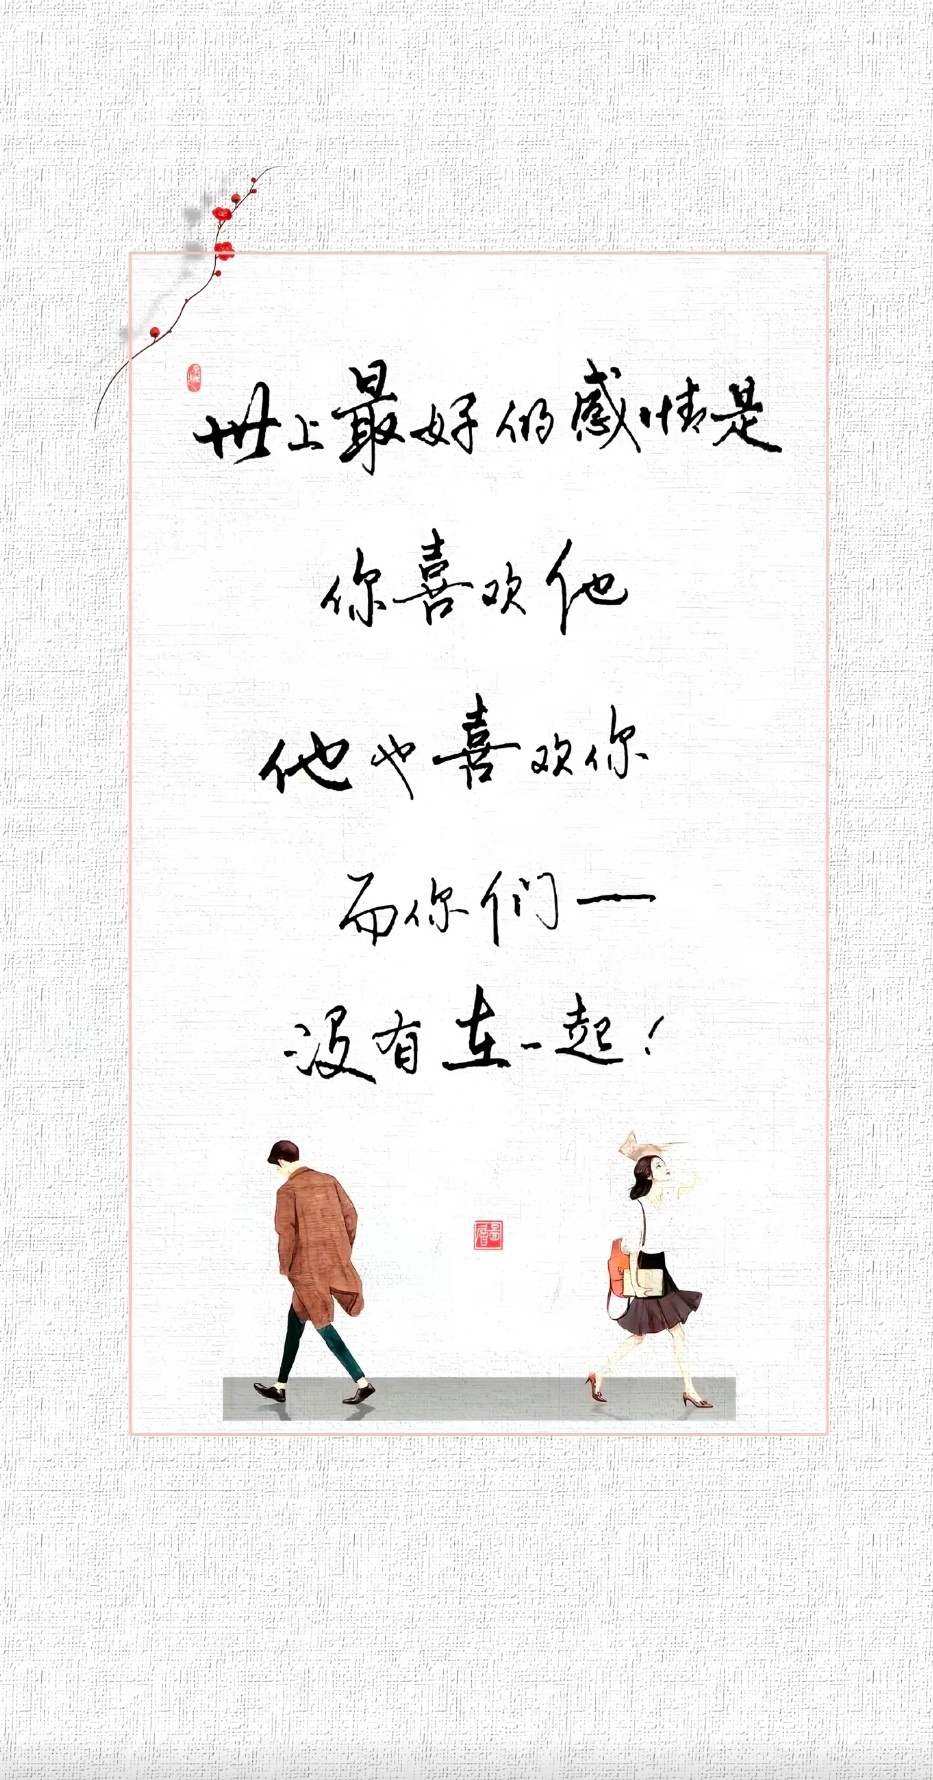 世上最好的感情是
你喜欢他
他也喜欢你
而你们一
没有在一起!